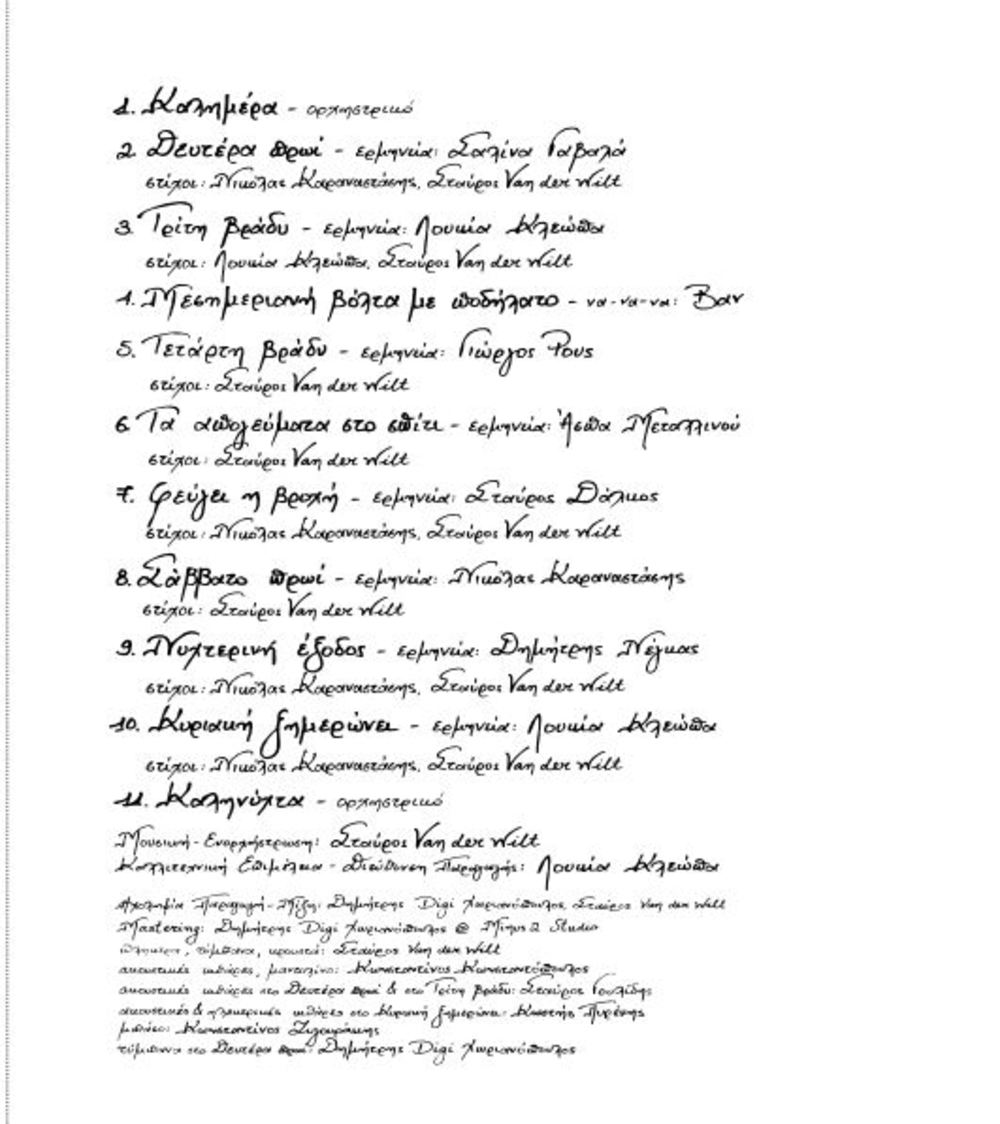 1. Καλημέρα - ορχηστρικό
2. Δευτέρα πρωί - ερμηνεία: Σαλίνα Γαβαλά
στίχοι: Νικόλας Καραναστάσης, Σταύρος Van der Wilt
3. Τρίτη βράδυ - ερμηνεία: Λουκία Κλεώπα
στίχοι: Λουκία Κλεώπα, Σταύρος Van der Wilt
4. Μεσημεριανή βόλτα με ποδήλατο - να-να-να: Βαν
5. Τετάρτη βράδυ - ερμηνεία: Γιώργος Ρους
στίχοι: Σταύρος Van der Wilt
6. Τα απογεύματα στο σπίτι - ερμηνεία: Άσπα Μεταλλινού
στίχοι: Σταύρος Van der Wilt
7. Φεύγει η βροχή - ερμηνεία: Σταύρος Δάλκος
στίχοι: Νικόλας Καραναστάσης, Σταύρος Van der Wilt
8. Σάββατο πρωί - ερμηνεία: Νικόλας Καραναστάσης
στίχοι: Σταύρος Van der Wilt
9. Νυχτερινή έξοδος - ερμηνεία: Δημήτρης Νέγκας
στίχοι: Νικόλας Καραναστάσης, Σταύρος Van der Wilt
10. Κυριακή ξημερώνει - ερμηνεία: Λουκία Κλεώπα
στίχοι: Νικόλας Καραναστάσης, Σταύρος Van der Wilt
11. Καληνύχτα - ορχηστρικό
Μουσική - Ενορχήστρωση: Σταύρος Van der Wilt
Καλλιτεχνική Επιμέλεια - Διεύθυνση Παραγωγής: Λουκία Κλεώπα
Ηχοληψία Παραγωγή - Μίξη: Δημήτρης Digi Χωριανόπουλος, Σταύρος Van der Wilt
Mastering: Δημήτρης Digi Χωριανόπουλος @ Minus 2 Studio
πλήκτρα, τύμπανα, κρουστά: Σταύρος Van der Wilt
ακουστικές κιθάρες, μαντολίνο: Κωνσταντίνος Κωνσταντόπουλος
ακουστικές κιθάρες στο Δευτέρα πρωί & στο Τρίτη βράδυ: Σταύρος Γουλίδης
ακουστικές & ηλεκτρικές κιθάρες στο Κυριακή ξημερώνει: Κωστής Πυρένης
μπάσο: Κωνσταντίνος Ζιγκιράκης
τύμπανα στο Δευτέρα πρωί: Δημήτρης Digi Χωριανόπουλος